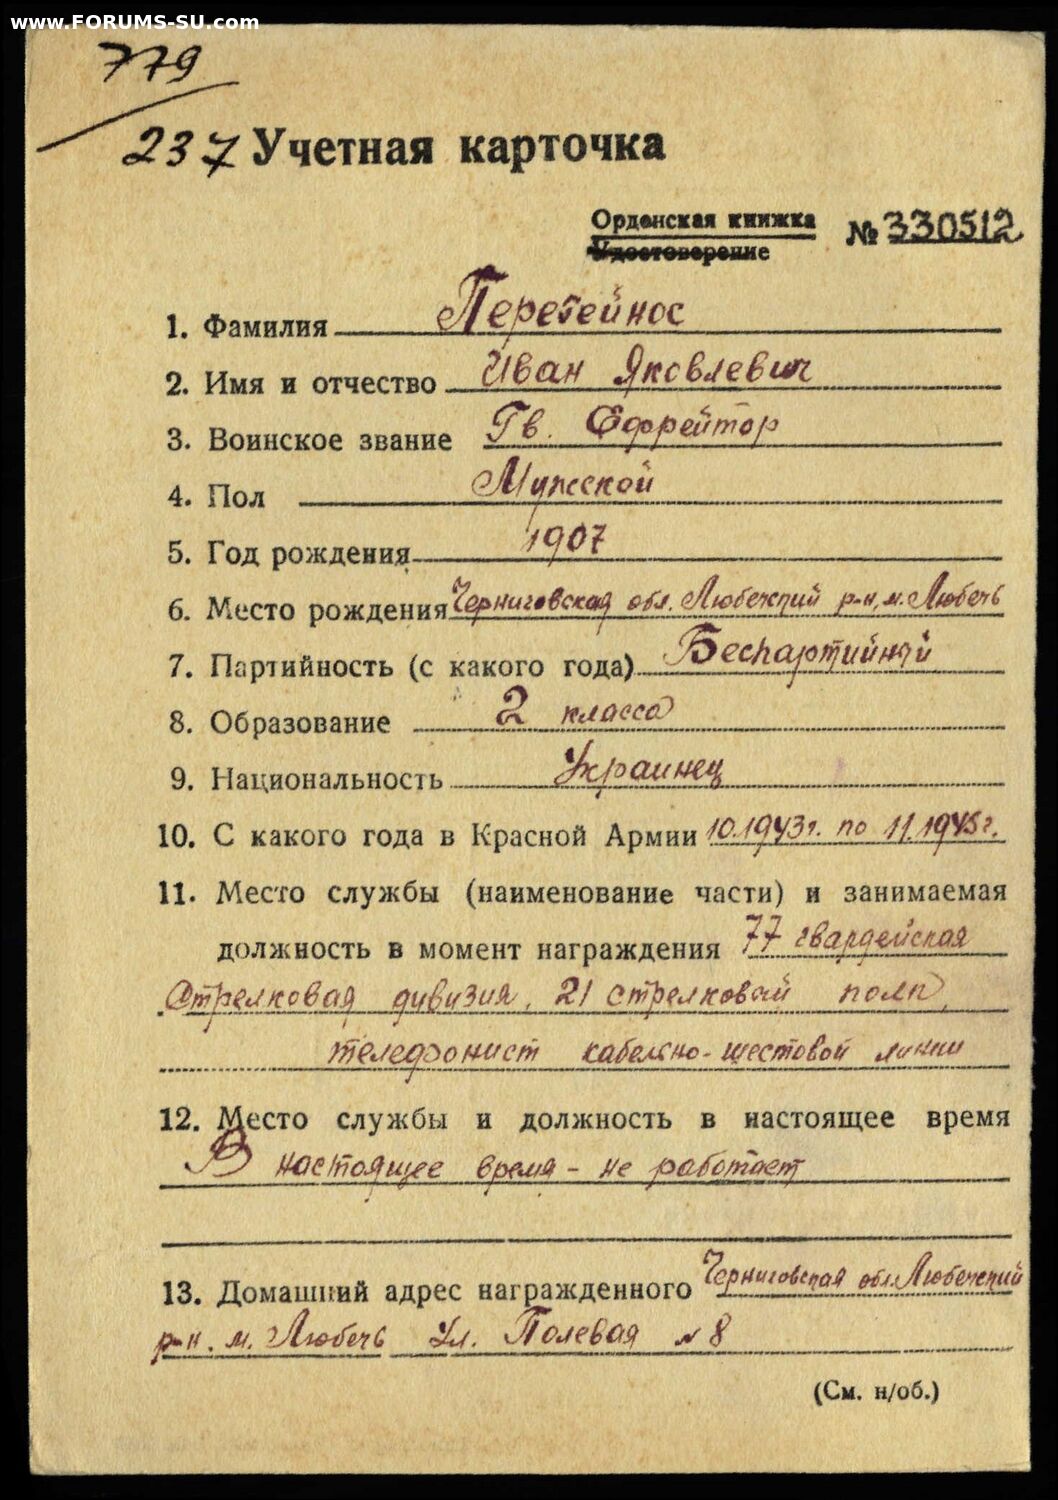 www.FORUMS-SU.com
779
237 Учетная карточка
Орденская книжка
Удостоверение
№ 330512
1. Фамилия
2. Имя и отчество Иван Яковлевич
3. Воинское звание Гв. Ефрейтор
4. Пол Мужской
5. Год рождения 1907
6. Место рождения Черниговская обл. Любечский р-н, м. Любечь
7. Партийность (с какого года) Беспартийный
8. Образование 2 класса
9. Национальность Украинец
10. С какого года в Красной Армии 10.1943г. по 11.1945г.
11. Место службы (наименование части) и занимаемая
должность в момент награждения 77 гвардейская
стрелковая дивизия, 21 стрелковый полк,
телефонист кабельно-шестовой линии
12. Место службы и должность в настоящее время
В настоящее время - не работает
13. Домашний адрес награжденного Черниговская обл. Любечский
р-н. м. Любечь ул. Полевая № 8
(См. н/об.)